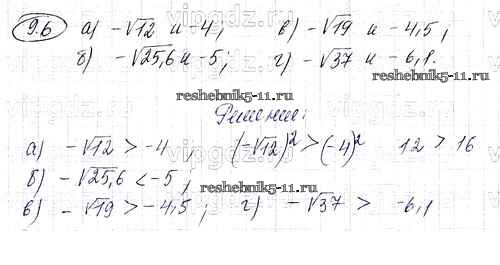 9.6 а) -√12 и -4; в) -√19 и -4,5;
б) -√25,6 и -5; г) -√37 и -6,1.
reshebnik5-11.ru
reshebnik5-11.ru
Решение:
а) -√12 > -4 ; (-√12)² > (-4)² 12 > 16
б) -√25,6 < -5 ;
reshebnik5-11.ru
в) -√19 > -4,5 ; г) -√37 > -6,1